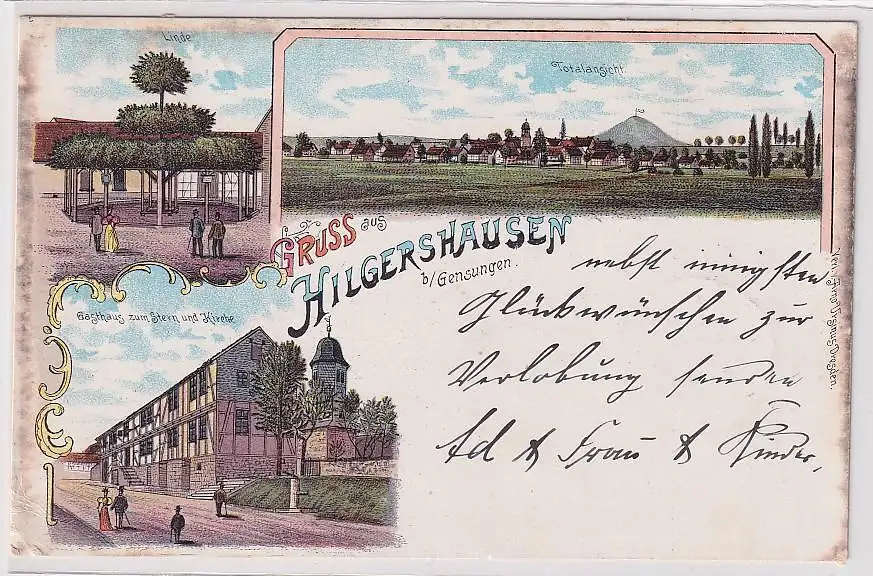 Linde
Totalansicht
GRUSS aus
HILGERSHAUSEN
b/Gensungen.
Gasthaus zum Stern und Kirche
nebst innigsten
Glückwünschen zur
Verlobung senden
Ad & Frau & Kinder,
Dresden.